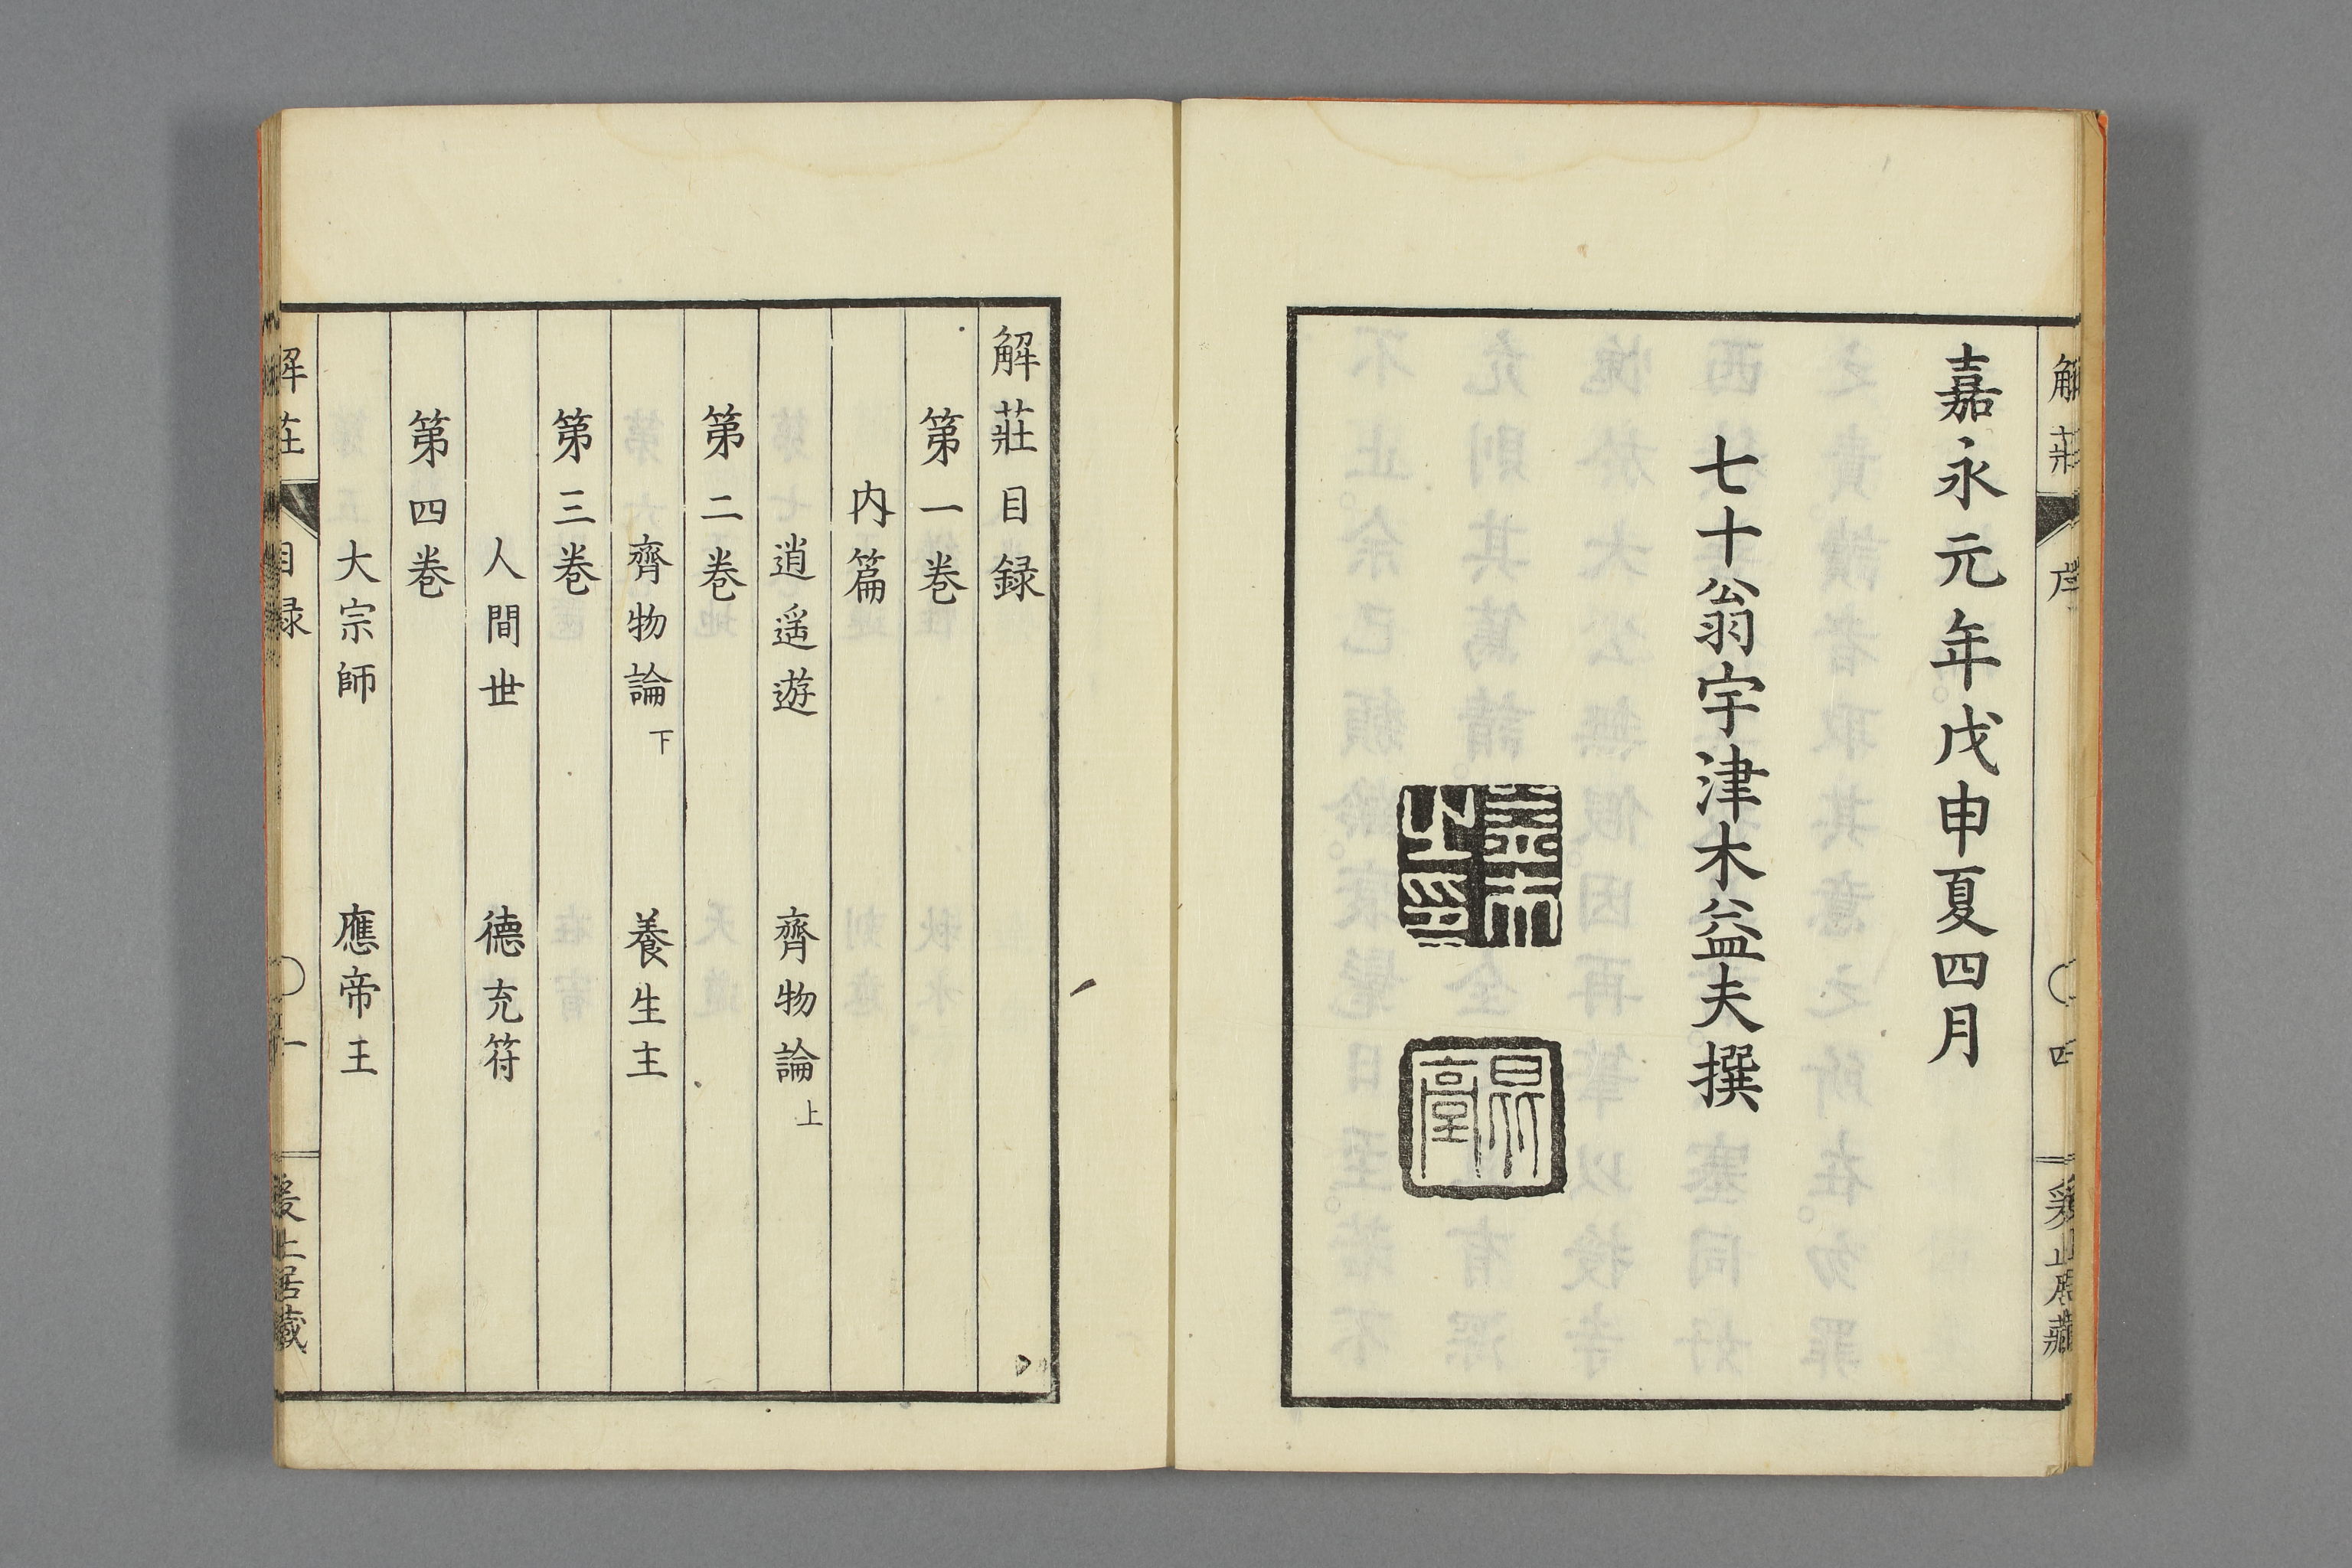 解莊 序 四
嘉永元年戊申夏四月
七十翁宇津木益夫撰
解莊目録
第一卷
内篇
逍遥遊 齊物論上
第二卷
齊物論下 養生主
第三卷
人間世 德充符
第四卷
大宗師 應帝王
解莊 目録 一